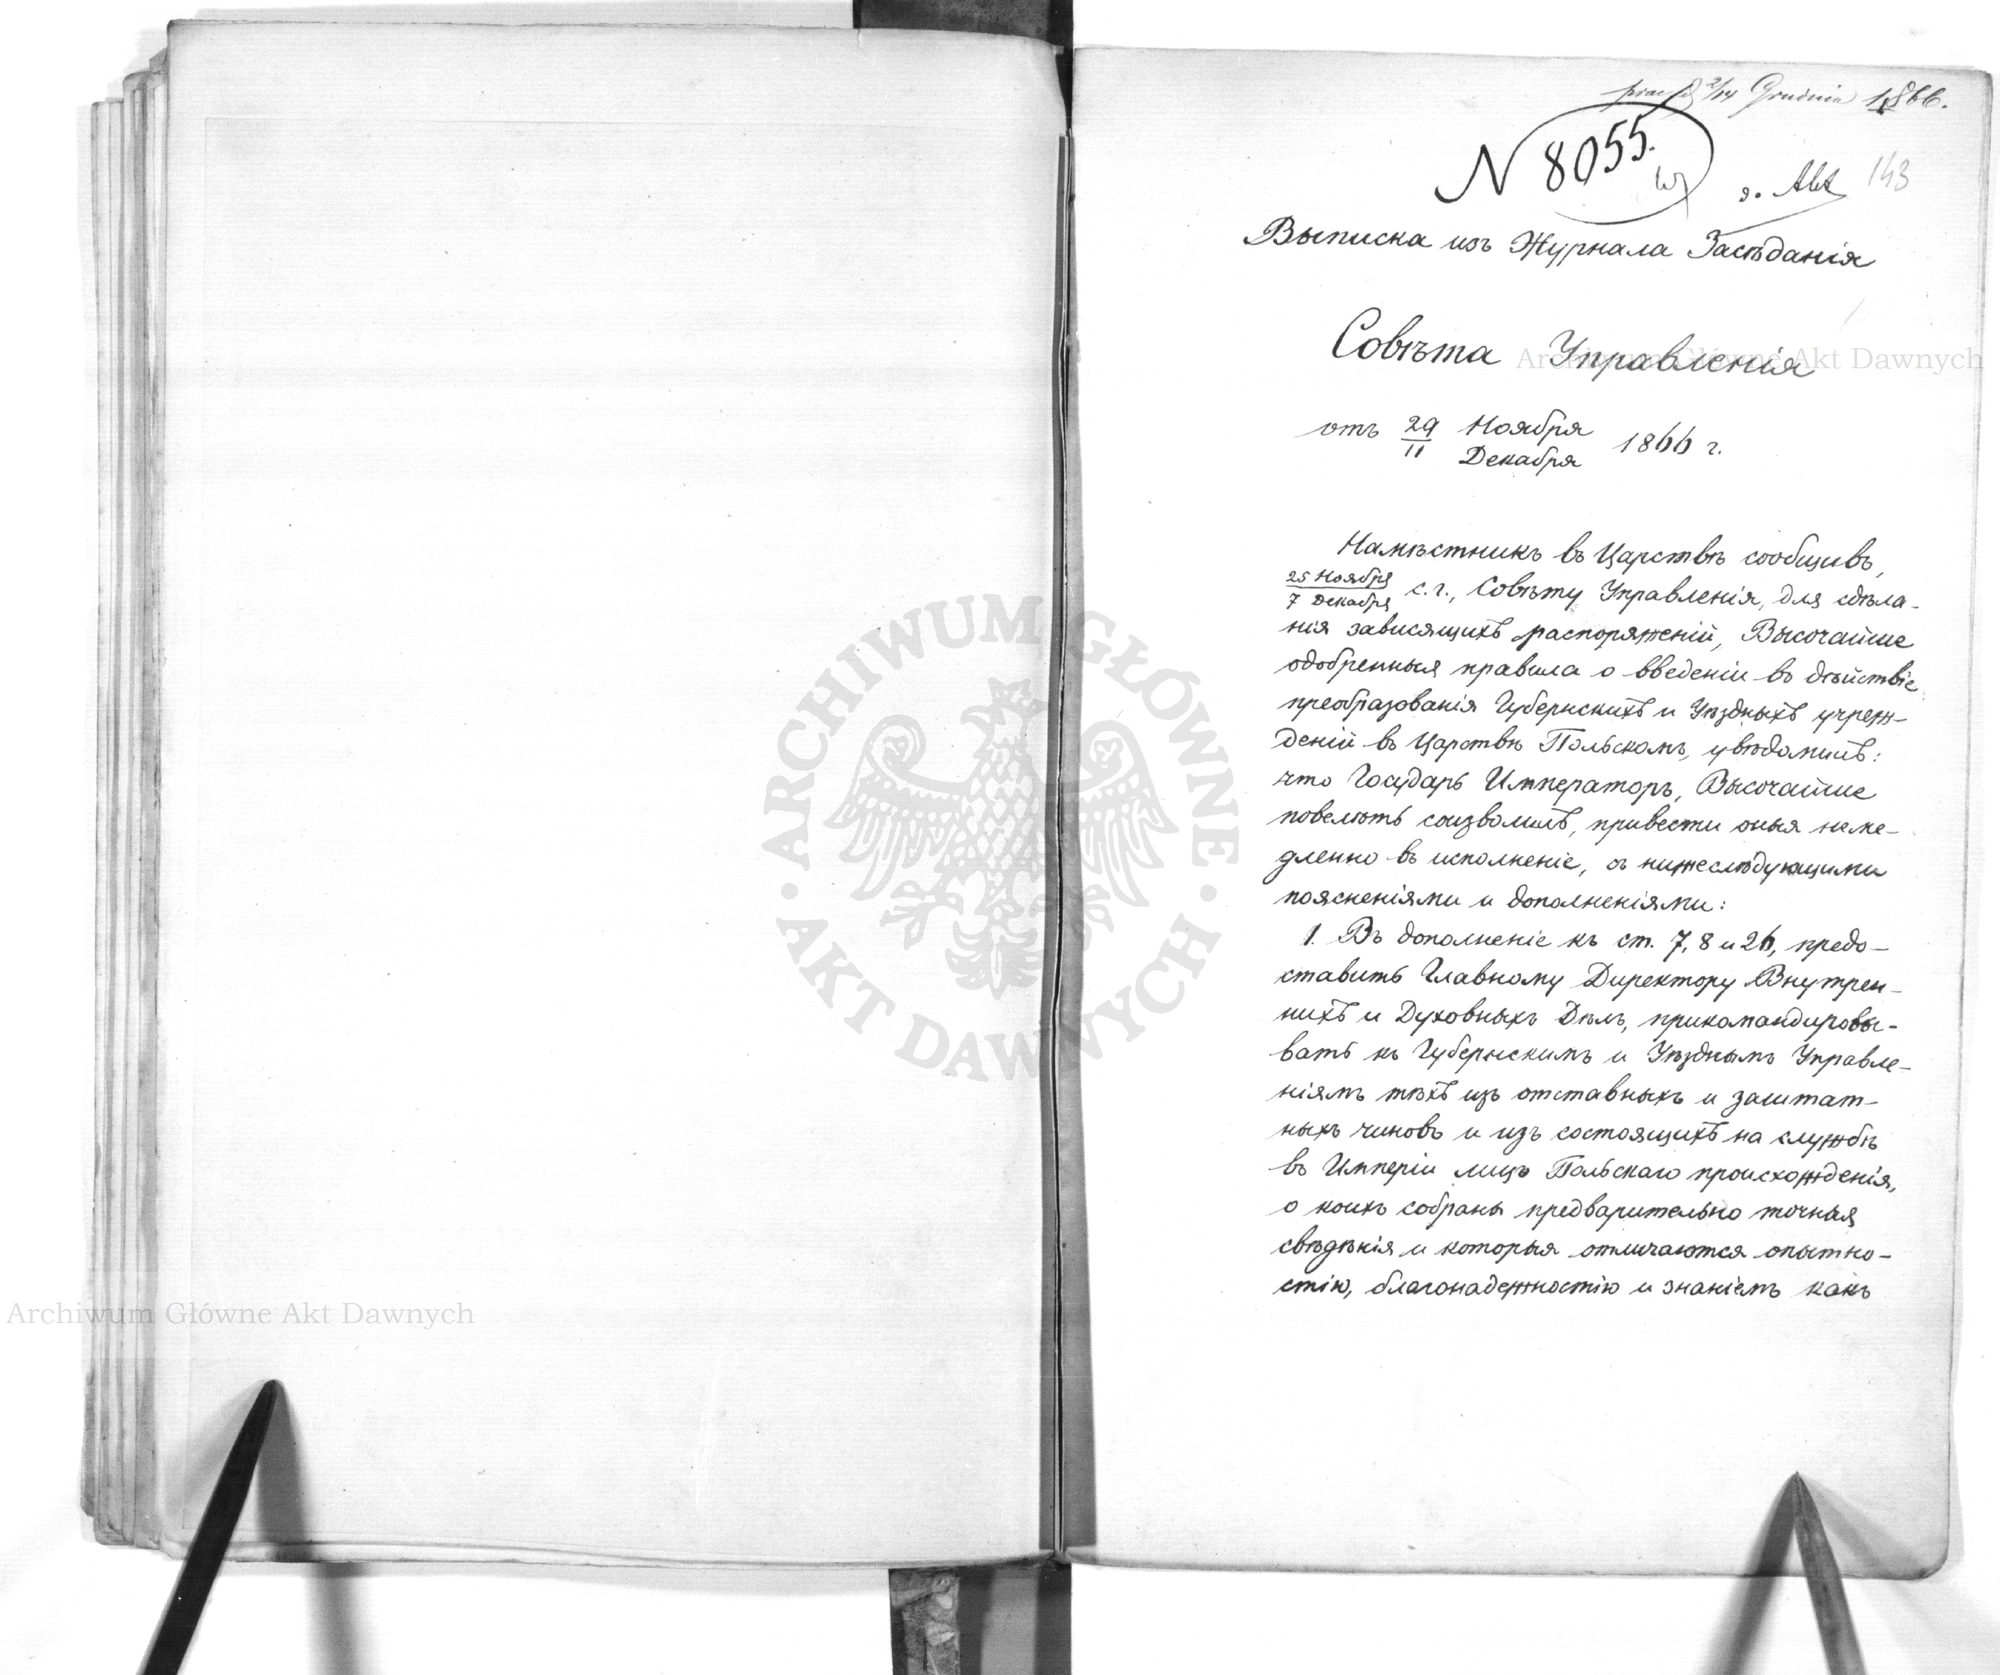 2/14 Grudnia 1866.
N 8055.
143
Выписка изъ Журнала Засѣданія
Совѣта Управленія
отъ 29/11 Ноября/Декабря 1866 г.
Намѣстникъ въ Царствѣ сообщивъ,
25 Ноября/7 Декабря с. г., Совѣту Управленія, для сдѣла-
нія зависящихъ распоряженій, Высочайше
одобренныя правила о введеніи въ дѣйствіе
преобразованія Губернскихъ и Уѣздныхъ учреж-
деній въ Царствѣ Польскомъ, увѣдомилъ:
что Государь Императоръ, Высочайше
повелѣть соизволилъ, привести оныя неме-
дленно въ исполненіе, съ нижеслѣдующими
поясненіями и дополненіями:
1. Въ дополненіе къ ст. 7, 8 и 26, предо-
ставить Главному Директору Внутрен-
нихъ и Духовныхъ Дѣлъ, прикомандировы-
вать къ Губернскимъ и Уѣзднымъ Управле-
ніямъ тѣхъ изъ отставныхъ и заштат-
ныхъ чиновъ и изъ состоящихъ на службѣ
въ Имперіи лицъ Польскаго происхожденія,
о коихъ собраны предварительно точныя
свѣдѣнія и которыя отличаются опытно-
стію, благонадежностію и знаніемъ какъ
ARCHIWUM GŁÓWNE AKT DAWNYCH
Archiwum Główne Akt Dawnych
Archiwum Główne Akt Dawnych